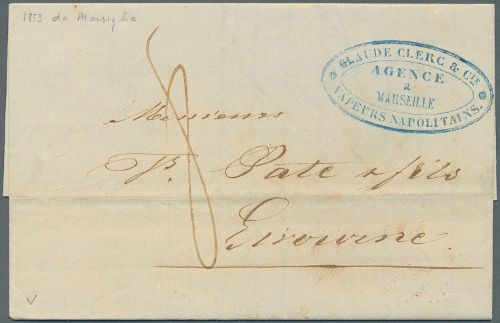 1853 da Marsiglia
CLAUDE CLERC & CIE
AGENCE
à
MARSEILLE
VAPEURS NAPOLITAINS.
8
Messieurs
Pre Pate & fils
Livourne
V